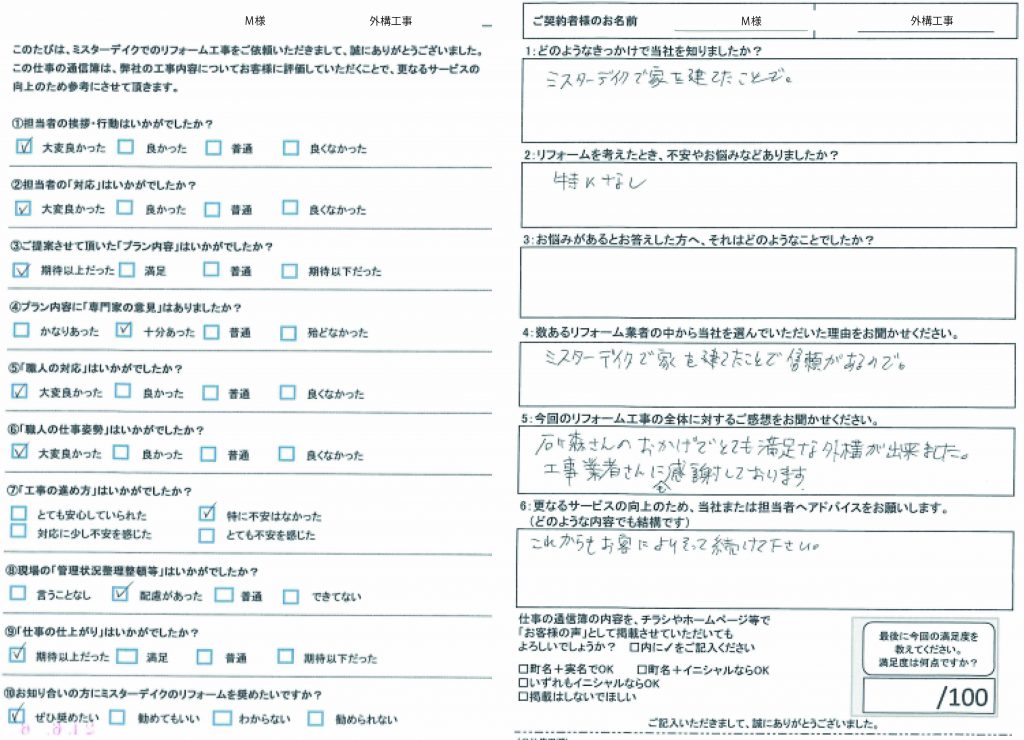 M様 外構工事
このたびは、ミスターデイクでのリフォーム工事をご依頼いただきまして、誠にありがとうございました。
この仕事の通信簿は、弊社の工事内容についてお客様に評価していただくことで、更なるサービスの
向上のため参考にさせて頂きます。
①担当者の挨拶・行動はいかがでしたか?
☑ 大変良かった □ 良かった □ 普通 □ 良くなかった
②担当者の「対応」はいかがでしたか?
☑ 大変良かった □ 良かった □ 普通 □ 良くなかった
③ご提案させて頂いた「プラン内容」はいかがでしたか?
☑ 期待以上だった □ 満足 □ 普通 □ 期待以下だった
④プラン内容に「専門家の意見」はありましたか?
□ かなりあった ☑ 十分あった □ 普通 □ 殆どなかった
⑤「職人の対応」はいかがでしたか?
☑ 大変良かった □ 良かった □ 普通 □ 良くなかった
⑥「職人の仕事姿勢」はいかがでしたか?
☑ 大変良かった □ 良かった □ 普通 □ 良くなかった
⑦「工事の進め方」はいかがでしたか?
□ とても安心していられた ☑ 特に不安はなかった
□ 対応に少し不安を感じた □ とても不安を感じた
⑧現場の「管理状況整理整頓等」はいかがでしたか?
□ 言うことなし ☑ 配慮があった □ 普通 □ できてない
⑨「仕事の仕上がり」はいかがでしたか?
☑ 期待以上だった □ 満足 □ 普通 □ 期待以下だった
⑩お知り合いの方にミスターデイクのリフォームを奨めたいですか?
☑ ぜひ奨めたい □ 勧めてもいい □ わからない □ 勧められない
ご契約者様のお名前 M様 外構工事
1:どのようなきっかけで当社を知りましたか?
ミスターデイクで家を建てたことで。
2:リフォームを考えたとき、不安やお悩みなどありましたか?
特になし
3:お悩みがあるとお答えした方へ、それはどのようなことでしたか?
4:数あるリフォーム業者の中から当社を選んでいただいた理由をお聞かせください。
ミスターデイクで家を建てたことで信頼があるので。
5:今回のリフォーム工事の全体に対するご感想をお聞かせください。
石ヶ森さんのおかげでとても満足な外構が出来ました。
工事業者さんにも感謝しております。
6:更なるサービスの向上のため、当社または担当者へアドバイスをお願いします。
(どのような内容でも結構です)
これからもお客によりそって続けて下さい。
仕事の通信簿の内容を、チラシやホームページ等で
「お客様の声」として掲載させていただいても
よろしいでしょうか? □内に✓をご記入ください
□町名+実名でOK □町名+イニシャルならOK
□いずれもイニシャルならOK
□掲載はしないでほしい
最後に今回の満足度を
教えてください。
満足度は何点ですか?
/100
ご記入いただきまして、誠にありがとうございました。